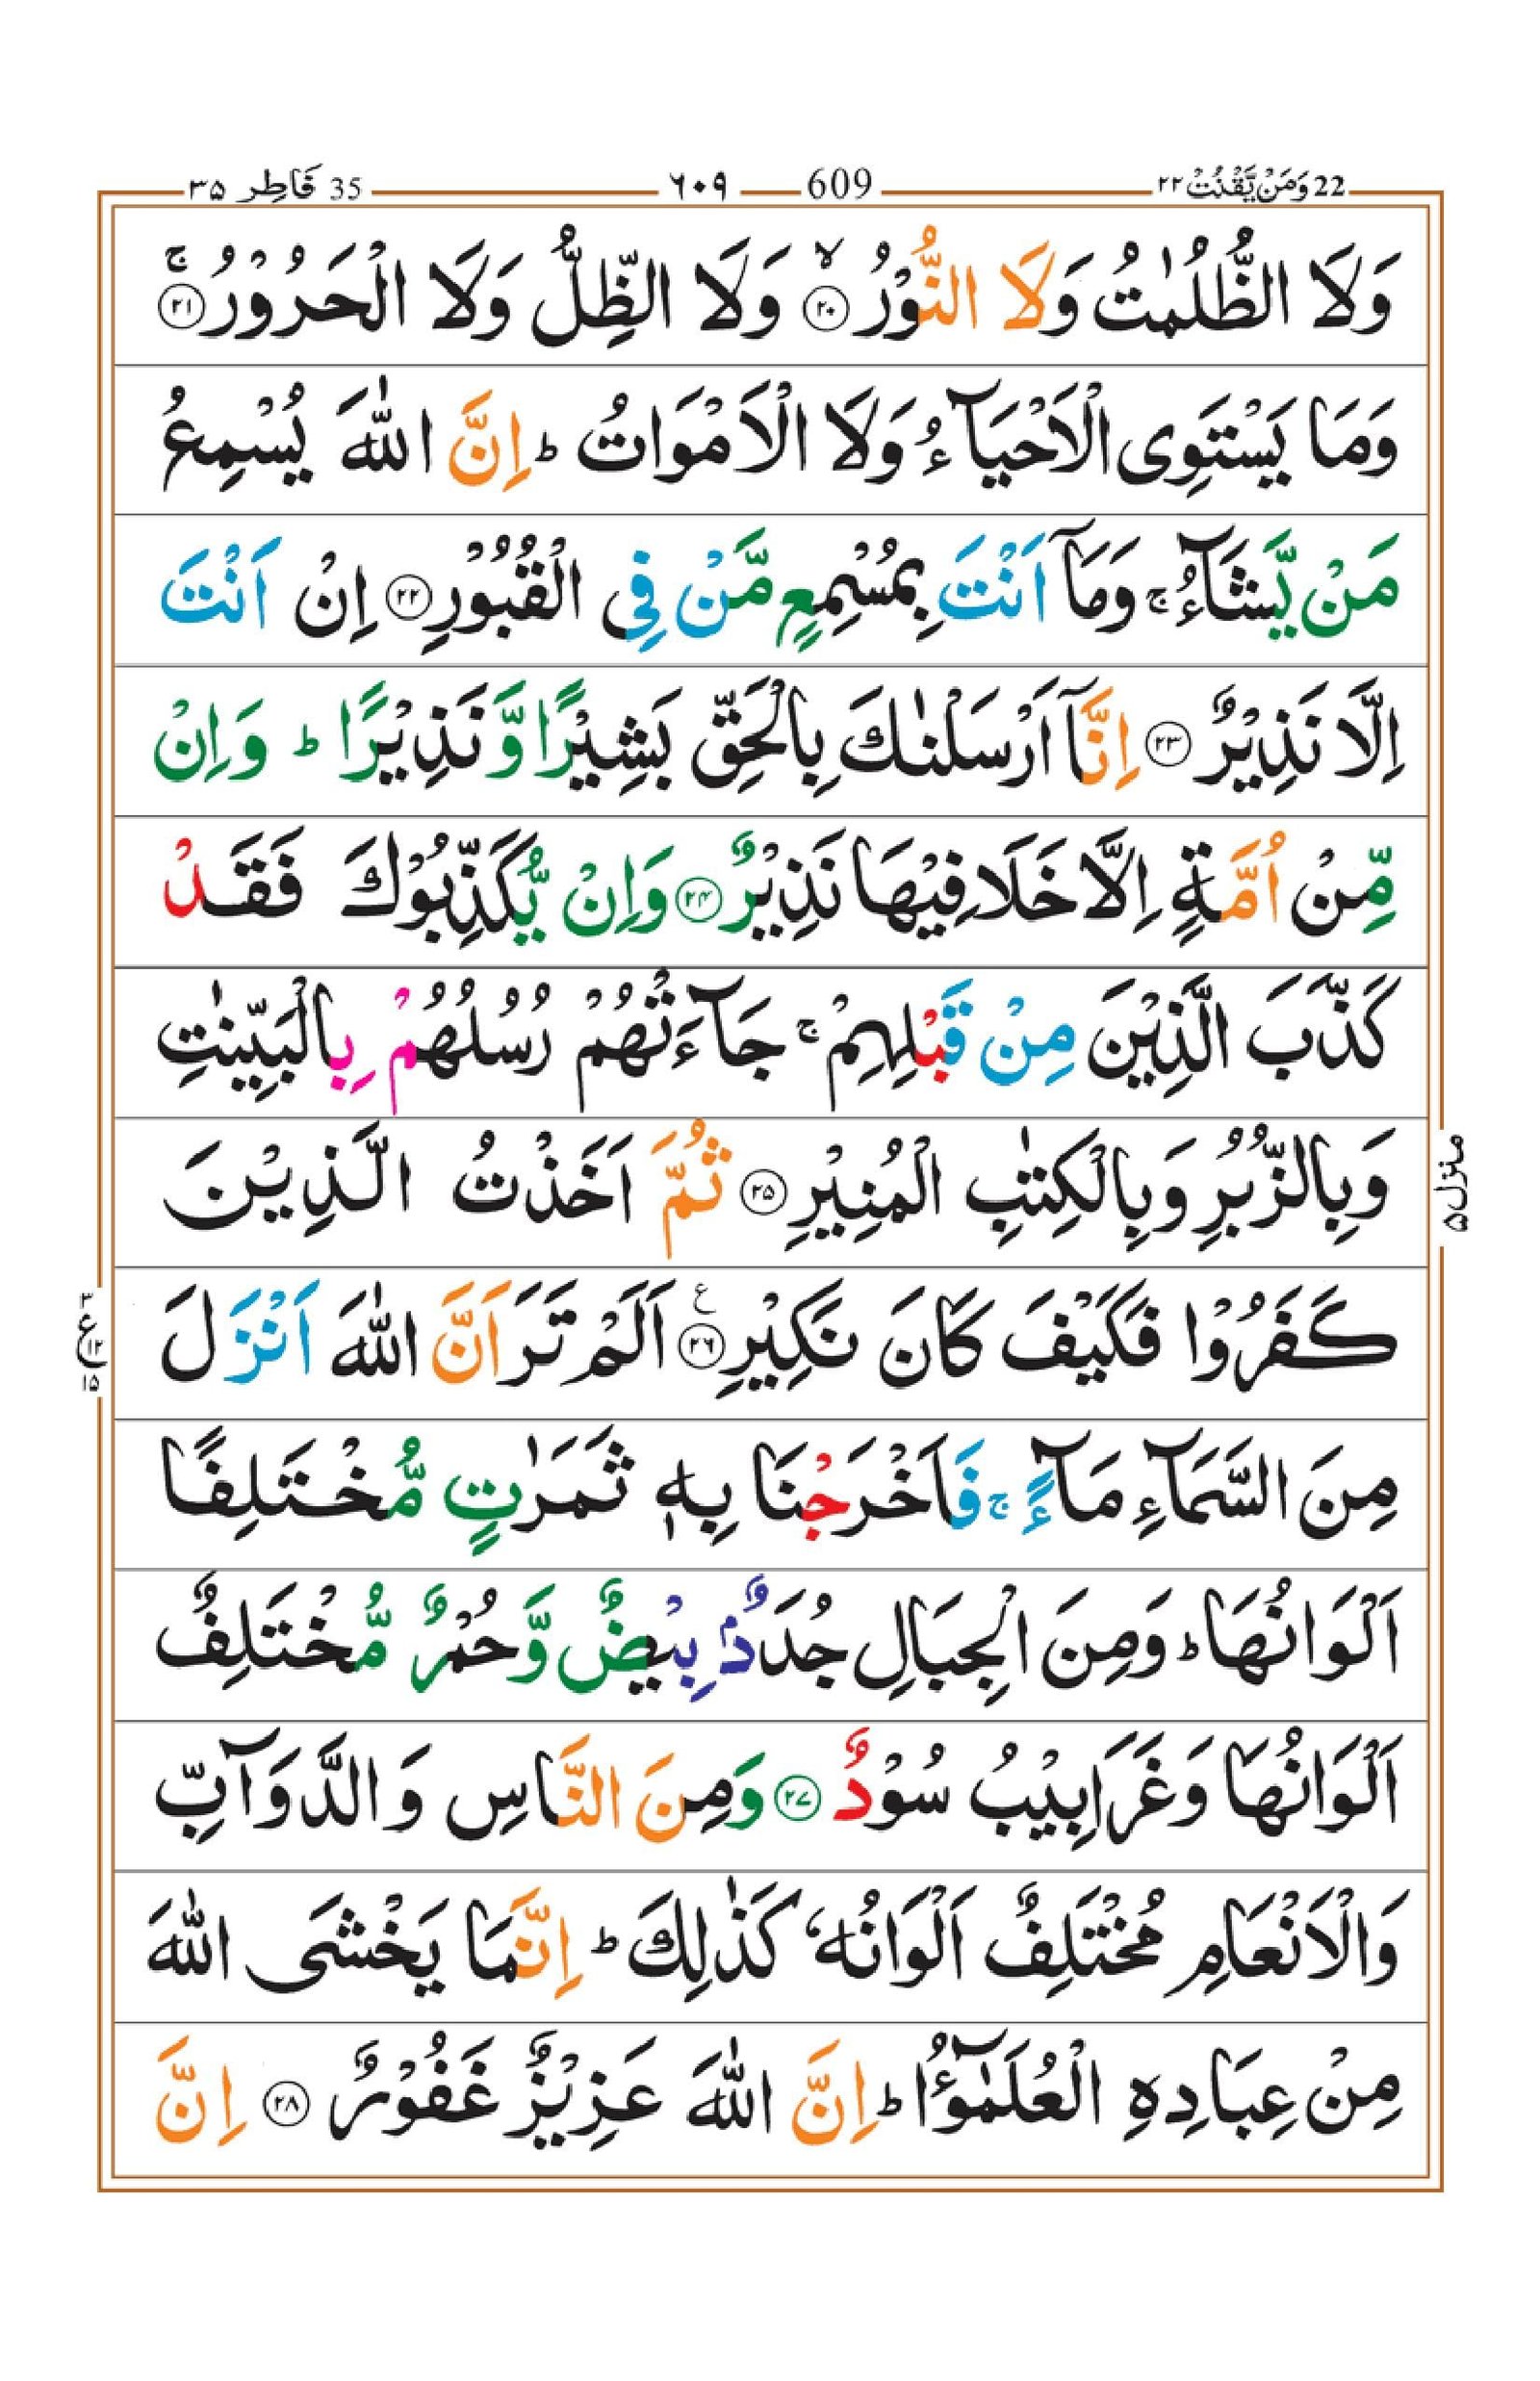 35 فَاطِر ۳۵ ٦٠٩ 609 22 وَمَنْ يَّقْنُتْ ۲۲
وَلَا الظُّلُمٰتُ وَلَا النُّوْرُ ۙ‏﴿۲۰﴾ وَلَا الظِّلُّ وَلَا الْحَرُوْرُ ۚ‏﴿۲۱﴾
وَمَا يَسْتَوِى الْاَحْيَآءُ وَلَا الْاَمْوَاتُ ؕ اِنَّ اللّٰهَ يُسْمِعُ
مَنْ يَّشَآءُ ۚ وَمَاۤ اَنْتَ بِمُسْمِعٍ مَّنْ فِى الْقُبُوْرِ ﴿۲۲﴾ اِنْ اَنْتَ
اِلَّا نَذِيْرٌ ﴿۲۳﴾ اِنَّاۤ اَرْسَلْنٰكَ بِالْحَقِّ بَشِيْرًا وَّنَذِيْرًا ؕ وَاِنْ
مِّنْ اُمَّةٍ اِلَّا خَلَا فِيْهَا نَذِيْرٌ ﴿۲۴﴾ وَاِنْ يُّكَذِّبُوْكَ فَقَدْ
كَذَّبَ الَّذِيْنَ مِنْ قَبْلِهِمْ ۚ جَآءَتْهُمْ رُسُلُهُمْ بِالْبَيِّنٰتِ
وَبِالزُّبُرِ وَبِالْكِتٰبِ الْمُنِيْرِ ﴿۲۵﴾ ثُمَّ اَخَذْتُ الَّذِيْنَ
كَفَرُوْا فَكَيْفَ كَانَ نَكِيْرِ ﴿۲۶﴾ ع اَلَمْ تَرَ اَنَّ اللّٰهَ اَنْزَلَ
مِنَ السَّمَآءِ مَآءً ۚ فَاَخْرَجْنَا بِهٖ ثَمَرٰتٍ مُّخْتَلِفًا
اَلْوَانُهَا ؕ وَمِنَ الْجِبَالِ جُدَدٌۢ بِيْضٌ وَّحُمْرٌ مُّخْتَلِفٌ
اَلْوَانُهَا وَغَرَابِيْبُ سُوْدٌ ﴿۲۷﴾ وَمِنَ النَّاسِ وَالدَّوَآبِّ
وَالْاَنْعَامِ مُخْتَلِفٌ اَلْوَانُهٗ كَذٰلِكَ ؕ اِنَّمَا يَخْشَى اللّٰهَ
مِنْ عِبَادِهِ الْعُلَمٰٓؤُا ؕ اِنَّ اللّٰهَ عَزِيْزٌ غَفُوْرٌ ﴿۲۸﴾ اِنَّ
منزل ۵
ع
۱۵